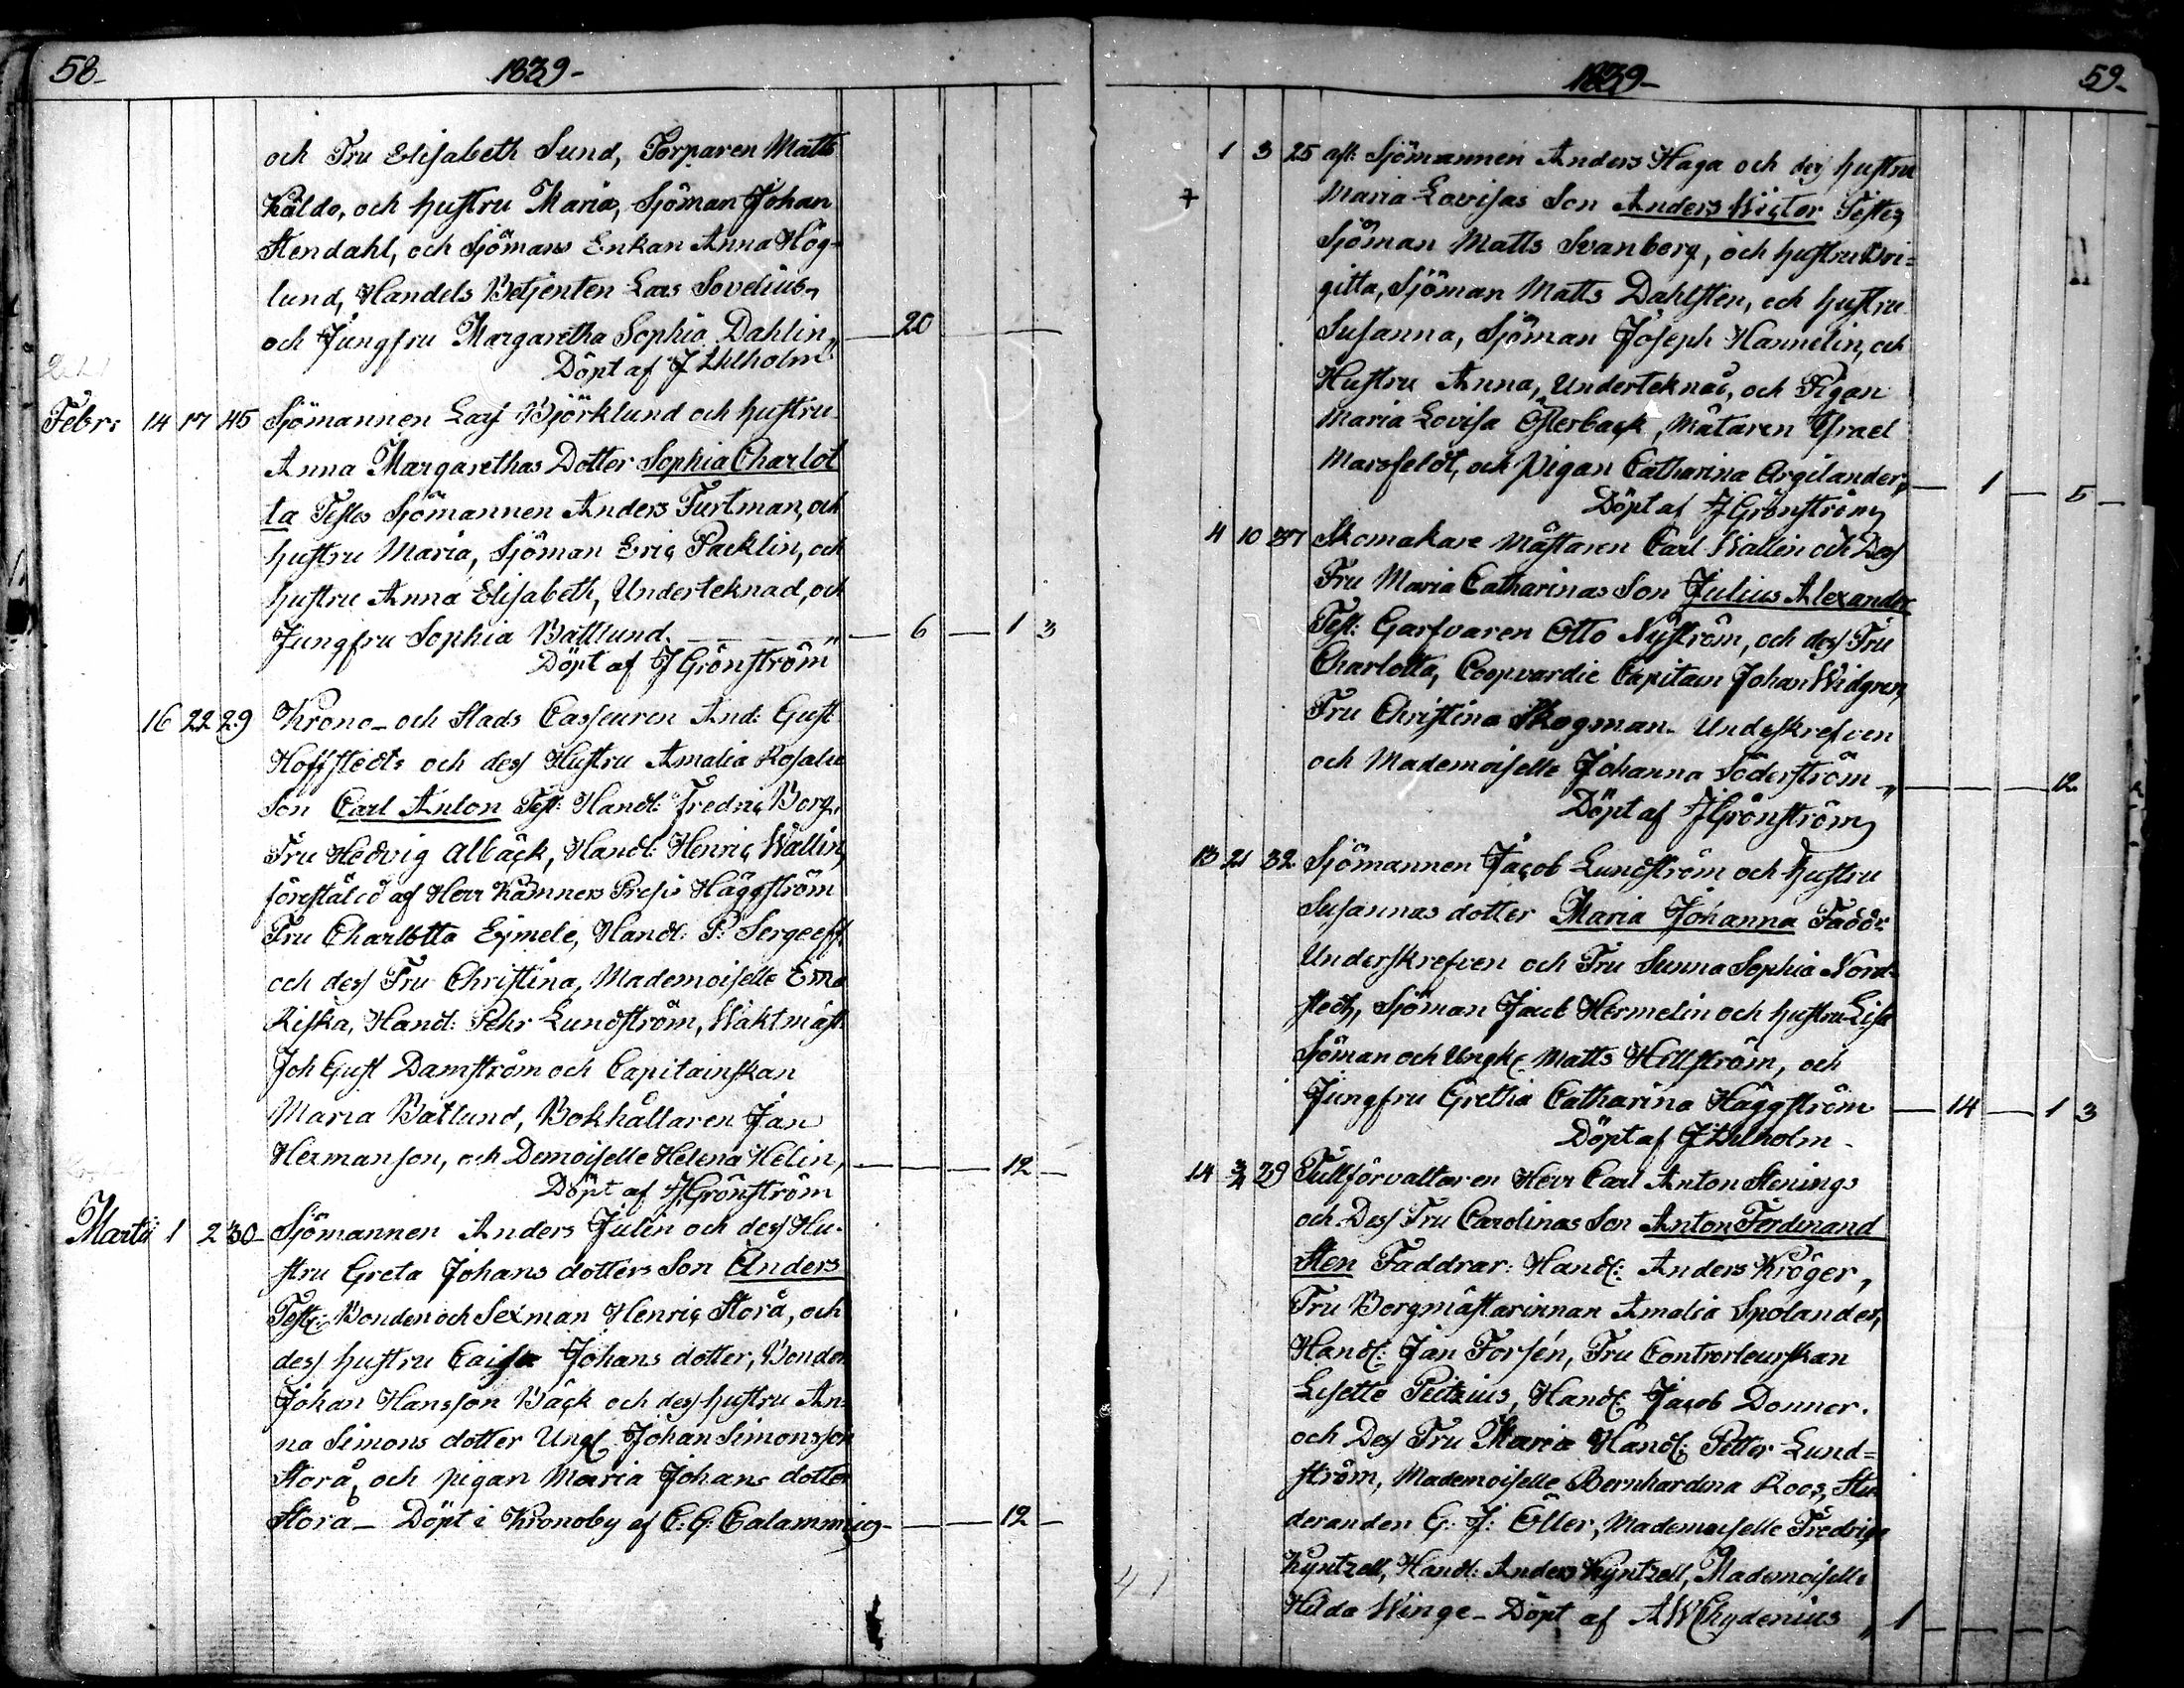 58-
1839-
och Fru Elisabeth Sund, Torparen Matts
Kåldo, och hustru Maria, Sjöman Johan
Stendahl, och Sjömans Enkan Anna Hög-
lund, Handels Betjenten Lars Sovelius,
och Jungfru Margaretha Sophia Dahlin, 20
Döpt af J Ahlholm
Febr: 14 17 45 Sjömannen Lars Björklund och hustru
Anna Margarethas Dotter Sophia Charlot
ta Testes Sjömannen Anders Furtman, och
hustru Maria, Sjöman Eric Packlin, och
hustru Anna Elisabeth, Underteknad, och
Jungfru Sophia Båtlund. 6 1 3
Döpt af J Grönström
16 22 29 Krono- och Stads Casseuren And: Gust
Hoffstedts och dess Hustru Amalia Rosalie
Son Carl Anton Test: Handl: Fredric Borg,
Fru Hedvig Albäck, Handl: Henric Wallin,
föreställd af Herr Kämners Preses Häggström
Fru Charlotta Eymele, Handl: P: Sergeeff
och dess Fru Christina, Mademoiselle Ema
Riska, Handl: Pehr Lundström, Waktmäst
Joh Gust Damström och Capitainskan
Maria Båtlund, Bokhållaren Jan
Hermanson, och Demoiselle Helena Helin, 12
Döpt af J Grönström
Martii 1 2 30 Sjömannen Anders Julin och dess Hu-
stru Greta Johans dotters Son Anders
Test: Bonden och Sexman Henric Storå, och
dess hustru Caisa Johans dotter, Bonden
Johan Hansson Bäck och dess hustru An-
na Simons dotter Ungk Johan Simonsson
Storå, och pigan Maria Johans dotter
Storå- Döpt i Kronoby af C: G: Calamnius- 12
1839-
59-
1 3 25 aft: Sjömannen Anders Haga och des hustru
Maria Lovisas Son Anders Wictor Testes
Sjöman Matts Svanberg, och hustru Bri=
gitta, Sjöman Matts Dahlsten, och hustru
Susanna, Sjöman Joseph Hannelin, och
Hustru Anna, Underteknad, och Pigan
Maria Lovisa Österback, Mätaren Israel
Marsfeldt, och Pigan Catharina Argilander, 1 5
Döpt af J Grönström
4 10 37 Skomakare Mästaren Carl Wallin och Dess
Fru Maria Catharinas Son Julius Alexander
Test: Garfvaren Otto Nyström, och dess Fru
Charlotta, Coopvardie Capitain Johan Widgren,
Fru Christina Skogman. Underskrefven
och Mademoiselle Johanna Söderström 12
Döpt af J Grönström
13 21 32 Sjömannen Jacob Lundström och hustru
Susannas dotter Maria Johanna Faddr
Underskrefven och Fru Sunna Sophia Nord-
stedt, Sjöman Jacob Hermelin och hustru Lisa
Sjöman och Ungk. Matts Hellström, och
Jungfru Gretha Catharina Häggström 14 1 3
Döpt af J Ahlholm
14 3/4 29 Tullförvaltaren Herr Carl Anton Stenings
och Dess Fru Carolinas Son Anton Ferdinand
Sten Faddrar: Handl: Anders Kröger,
Fru Borgmästarinnan Amalia Spolander,
Handl: Jan Forsén, Fru Controrleurskan
Lisette Peitzius, Handl: Jacob Donner.
och Dess Fru Maria Handl: Petter Lund=
ström, Mademoiselle Bernhardina Roos, Stu
deranden G: J: Öller, Mademoiselle Fredrica
Kyntzell, Handl: Anders Kyntzell, Mademoiselle
Hilda Winge- Döpt af A W Chydenius 1